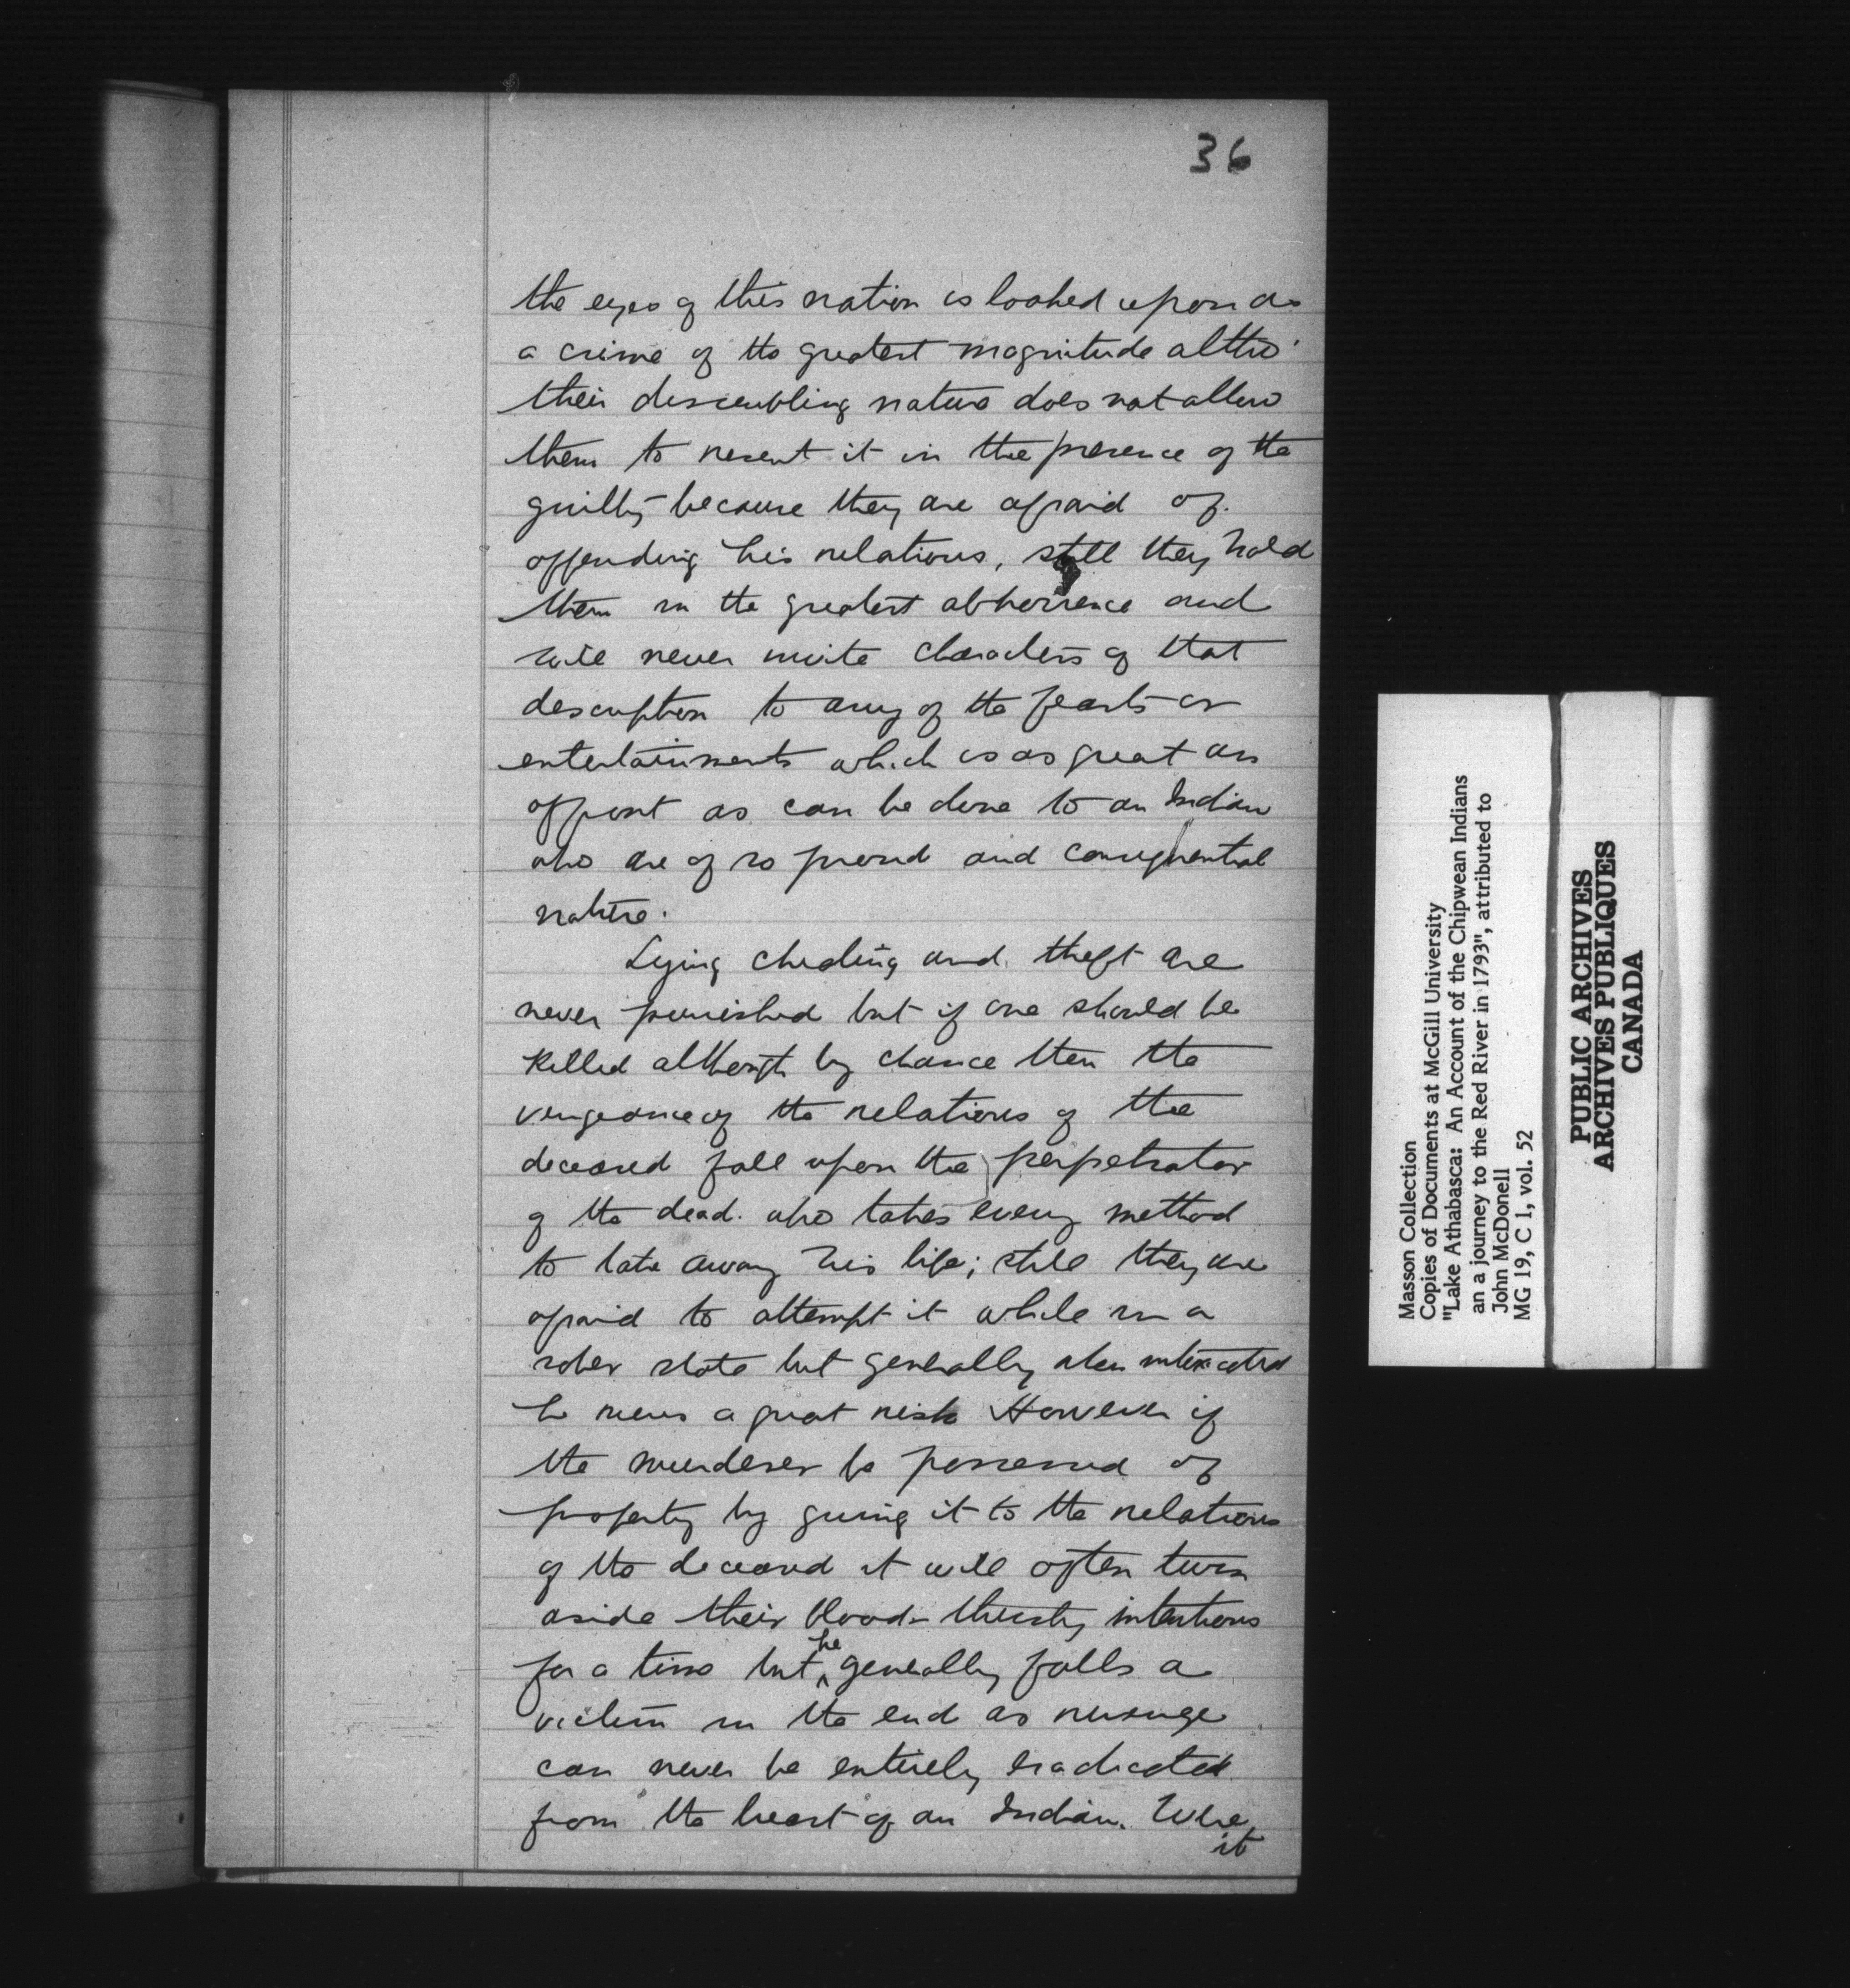 36
the eyes of this nation is looked upon as
a crime of the greatest magnitude altho'
their dissembling nature does not allow
them to resent it in the presence of the
guilty because they are afraid of
offending his relations, still they hold
them in the greatest abhorrence and
will never invite characters of that
description to any of the feasts or
entertainments which is as great an
affront as can be done to an Indian
who are of so proud and consequential
nature.
Lying cheating and theft are
never punished but if one should be
killed although by chance then the
vengeance of the relations of the
deceased fall upon the perpetrator
of the dead. who takes every method
to take away his life; still they are
afraid to attempt it while in a
sober state but generally when intoxicated
he runs a great risk However if
the murderer be possessed of
property by giving it to the relations
of the deceased it will often turn
aside their blood-thirsty intentions
for a time but he generally falls a
victim in the end as revenge
can never be entirely eradicated
from the heart of an Indian. Where
it
Masson Collection
Copies of Documents at McGill University
"Lake Athabasca: An Account of the Chipwean Indians
an a journey to the Red River in 1793", attributed to
John McDonell
MG 19, C 1, vol. 52
PUBLIC ARCHIVES
ARCHIVES PUBLIQUES
CANADA